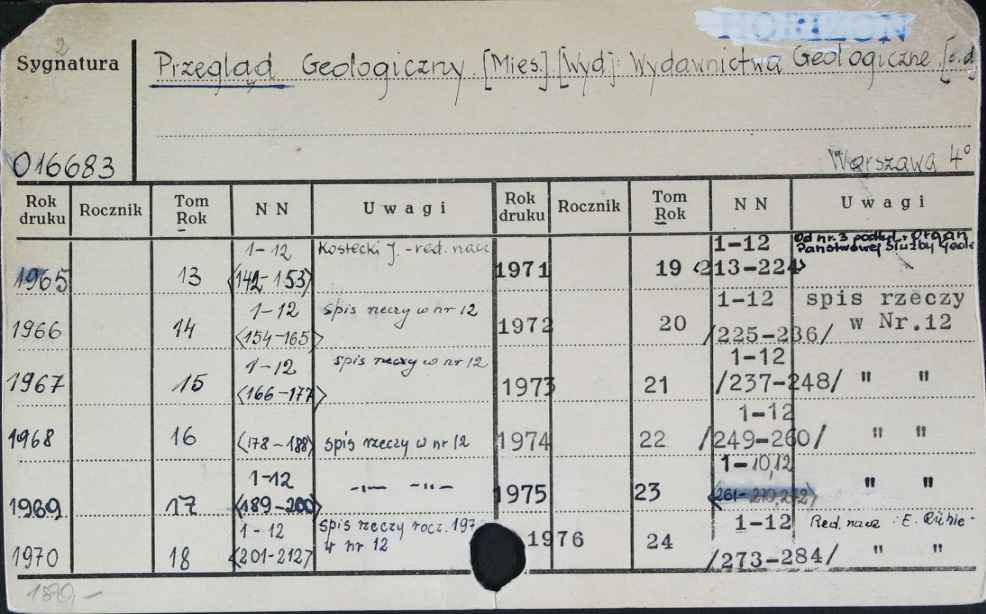 HORIZON
2
Sygnatura
Przegląd Geologiczny. [Mies.] [Wyd]: Wydawnictwa Geologiczne. [c.d]
016683
Warszawa 4°
Rok druku Rocznik Tom Rok NN Uwagi Rok druku Rocznik Tom Rok NN Uwagi
1965 13 1-12 <142-153> Kostecki J. - red. nacz
1966 14 1-12 <154-165> spis rzeczy w nr 12
1967 15 1-12 <166-177> spis rzeczy w nr 12
1968 16 <178-188> spis rzeczy w nr 12
1969 17 1-12 <189-200> -"- -"-
1970 18 1-12 <201-212> spis rzeczy rocz. 197 w nr 12
1971 19 1-12 <213-224> Od nr. 3 podtyt.: Organ Państwowej Służby Geolo
1972 20 1-12 /225-236/ spis rzeczy w Nr.12
1973 21 1-12 /237-248/ " "
1974 22 1-12 /249-260/ " "
1975 23 1-10,12 <261-270,272> " "
1976 24 1-12 /273-284/ Red. nacz. E. Rühle. " "
180,-